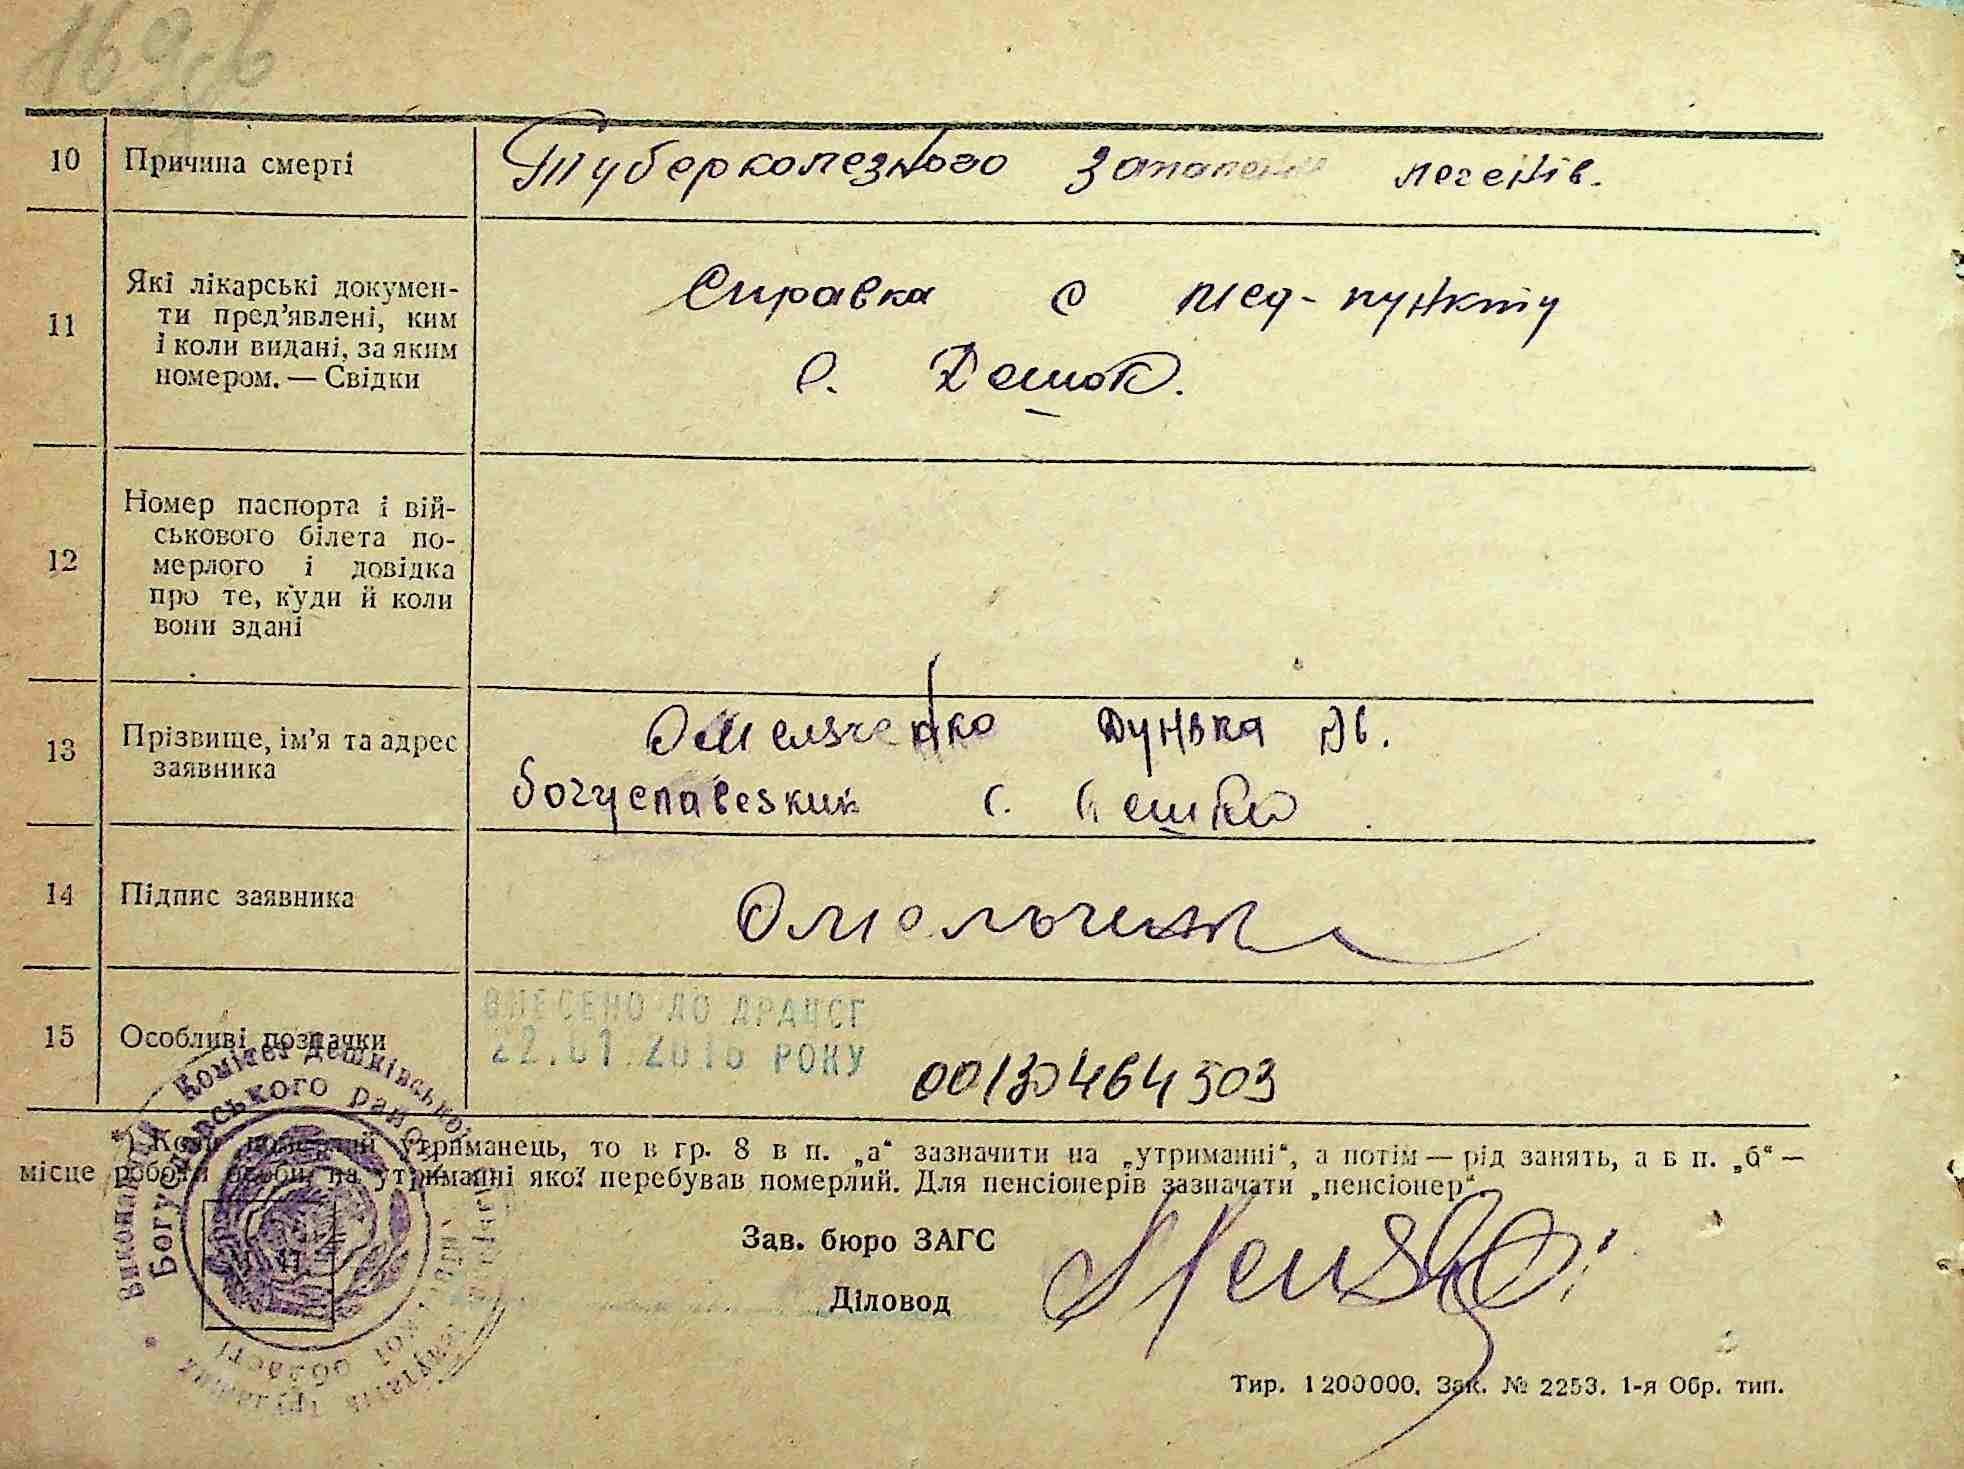 10 Причина смерті Туберколезного запалення легенів.
11 Які лікарські докумен-
ти пред’явлені, ким
і коли видані, за яким
номером. — Свідки
Справка с мед-пункту
с. Дешок.
12 Номер паспорта і вій-
ськового білета по-
мерлого і довідка
про те, куди й коли
вони здані
13 Прізвище, ім’я та адрес
заявника
Омельченко Дунька Ів.
богуславський с.
14 Підпис заявника
15 Особливі позначки
ВНЕСЕНО ДО ДРАЦСГ
22.01.2016 РОКУ
00130464503
*) Коли померлий утриманець, то в гр. 8 в п. „а“ зазначити на „утриманні“, а потім — рід занять, а в п. „б“ —
місце роботи особи, на утриманні якої перебував померлий. Для пенсіонерів зазначати „пенсіонер“.
Виконавчий Комітет Дешківської
Богуславського району
області
Зав. бюро ЗАГС
Діловод
Тир. 1200000. Зак. № 2253. 1-я Обр. тип.